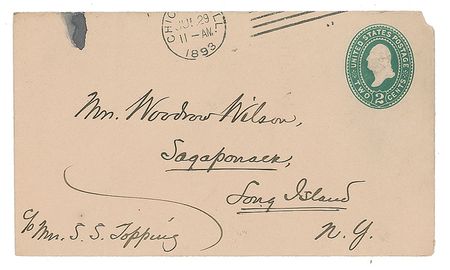 CHICAGO, ILL.
JUL 29
11-AM
1893
UNITED STATES POSTAGE
TWO 2 CENTS
Mr. Woodrow Wilson,
Sagaponack,
Long Island
N. Y.
c/o Mr. S. S. Topping